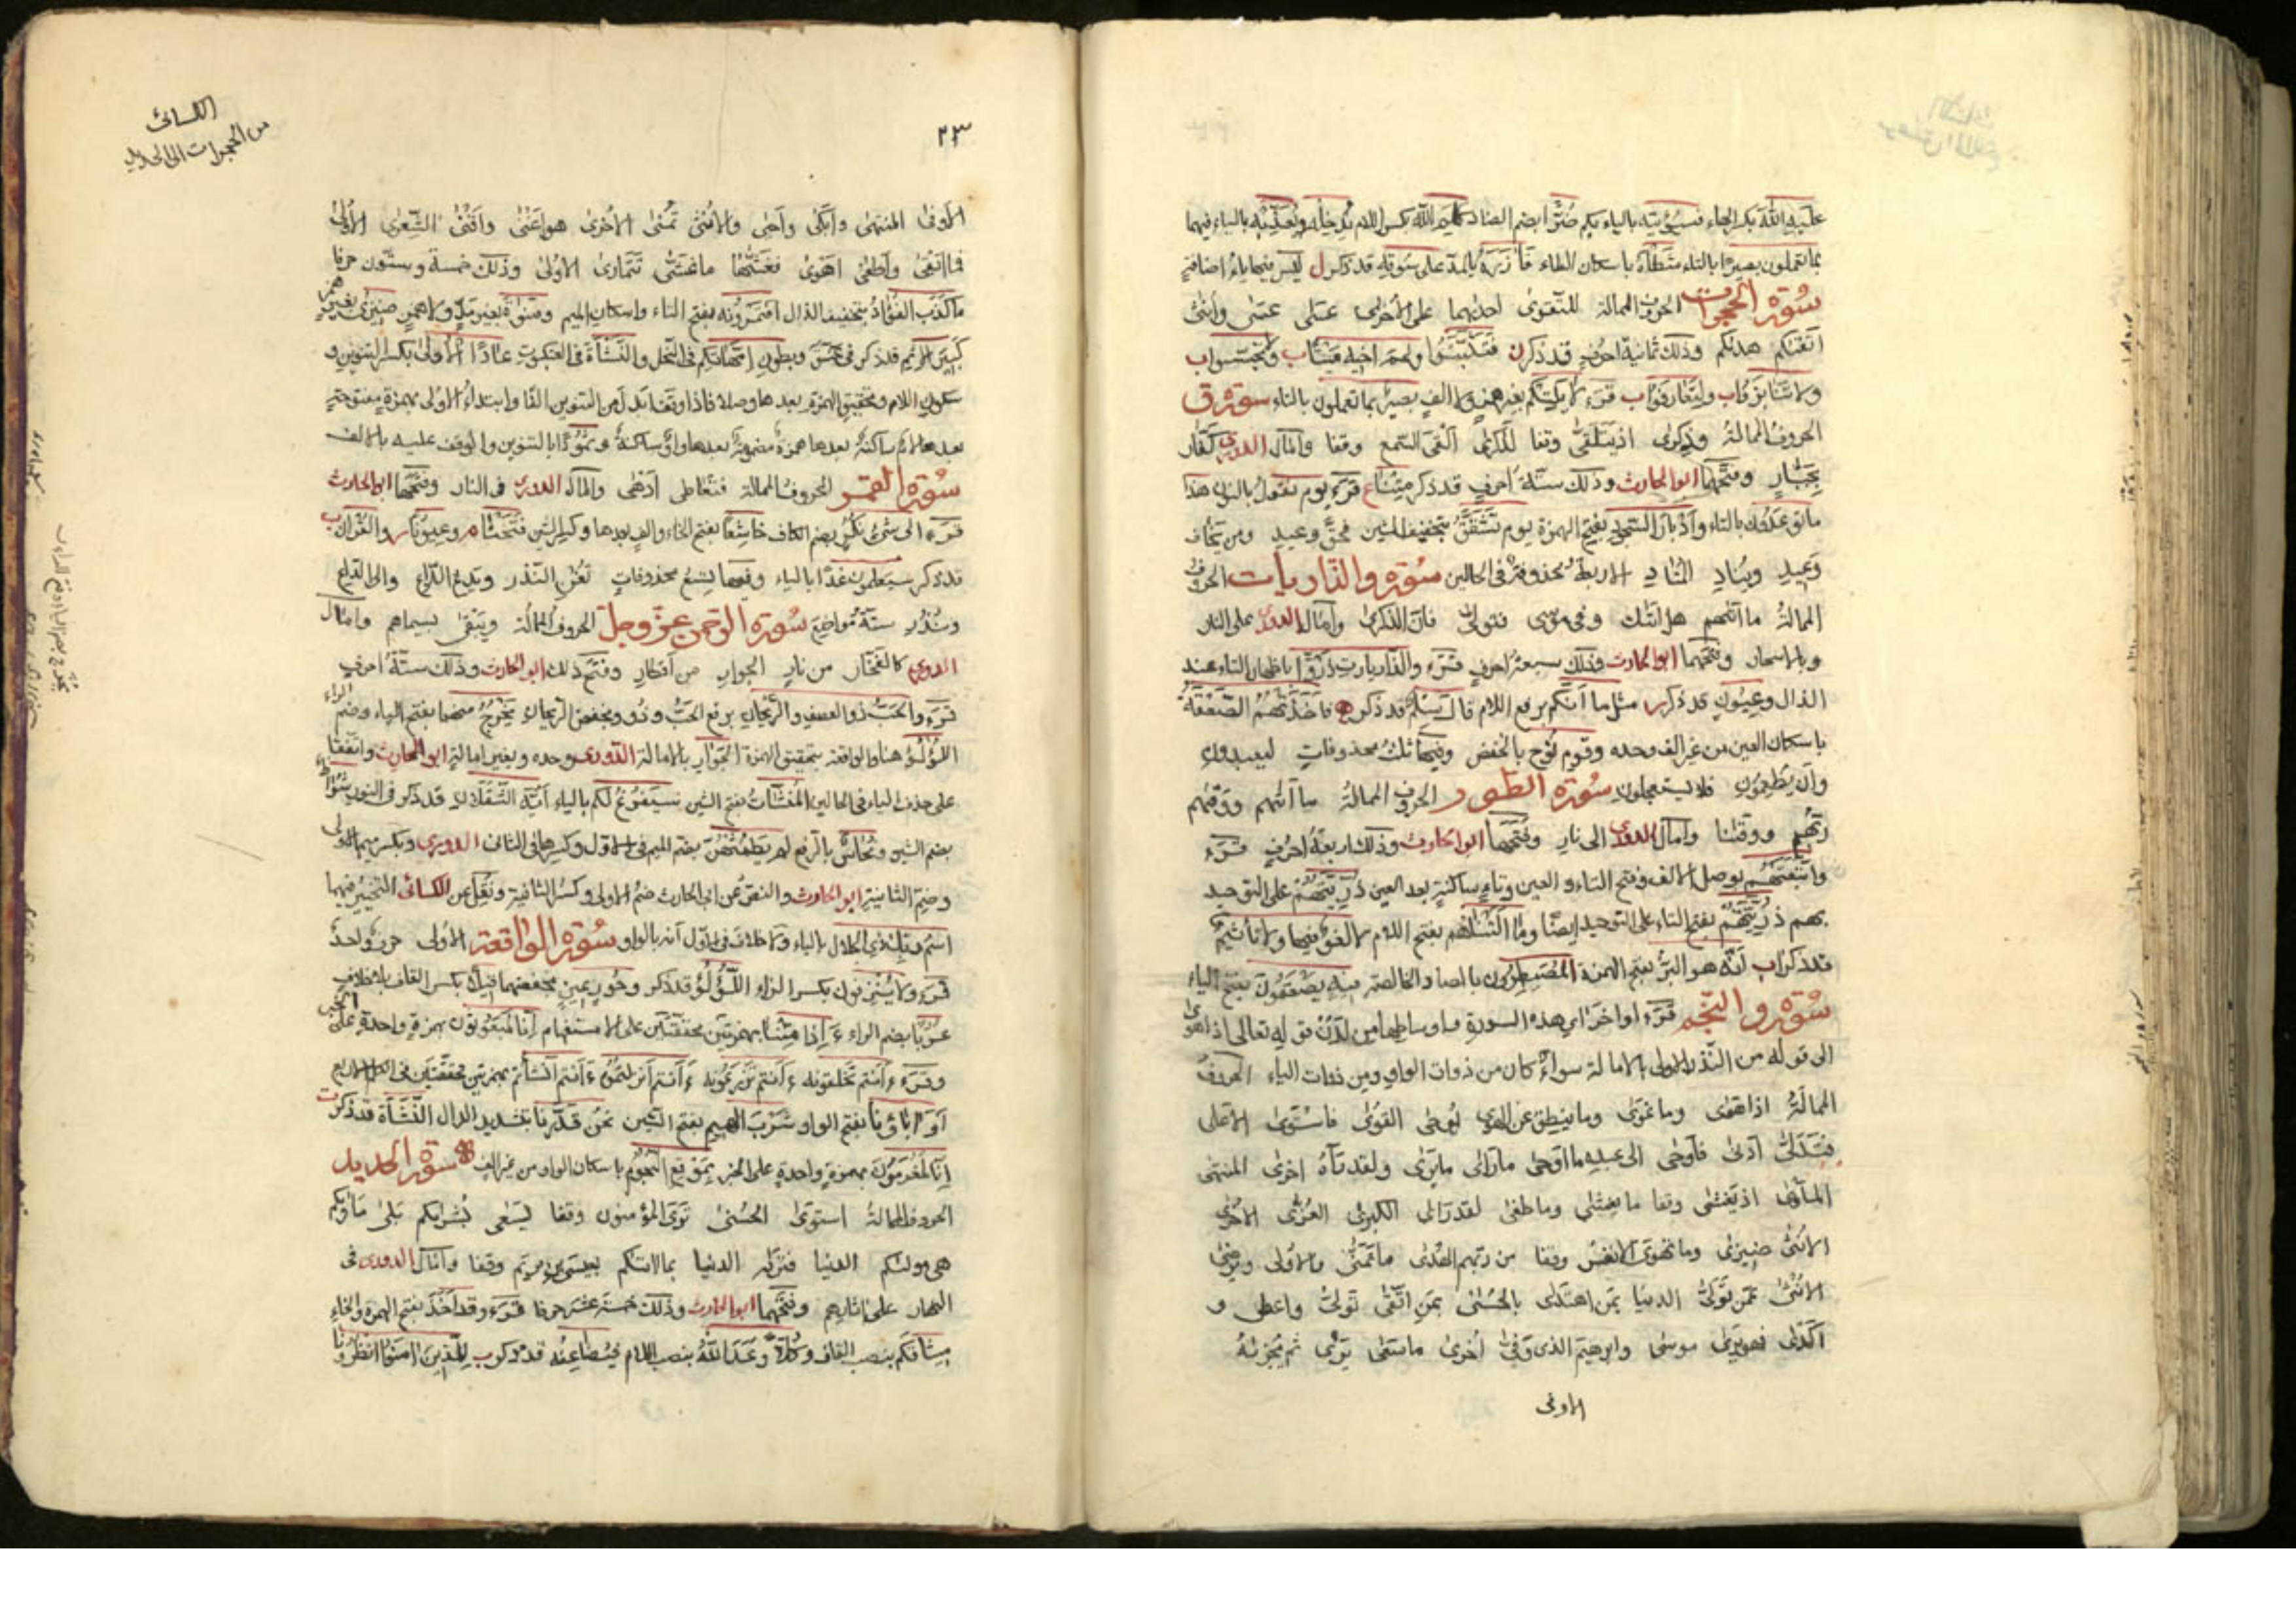 عليه الله بكسر الهاء فسيؤتيه بالياء بكم ضرّا بضم الضاد كلم الله بكسر اللام يدخله ويعذّبه بالياء فيهما
بما تعملون بصيرا بالتاء شطأه باسكان الطاء فآزره بالمد على سوقه قد ذكر ل ليس فيها ياء اضافة
سورة الحجرات الحروف الممالة للتقوى احديهما على الأخرى عسى عسى وأنثى
اتقيكم هديكم وذلك ثمانية احرف قد ذكرن فتثبتوا ولحم اخيه ميتا ب ولا تجسسوا ب
ولا تنابزوا ب ولتعارفوا ب قرء لا يلتكم بغير همز ولا الف بصير بما تعملون بالتاء سورة ق
الحروف الممالة وذكرى اذ يتلقى وقفا لذكرى ألقى السمع وقفا وامال الدوري كفّار
بجبّار وفتحهما ابو الحارث وذلك ستّة احرف قد ذكر متنا ع قرء يوم نقول بالنون هذا
ما توعدون بالتاء وأدبار السجود بفتح الهمزة يوم تشقّق بتخفيف الشين فحقّ وعيد ومن يخاف
وعيد ويناد المناد الاربعة محذوفة في الحالين سورة والذاريات الحروف
الممالة ما آتيهم هل اتيك وفي موسى فتولى فان الذكرى وامال الدوري على النار
وبالاسحار وفتحهما ابو الحارث وذلك سبعة احرف قرء والذاريات ذروا باظهار التاء عند
الذال وعيون قد ذكر ر مثل ما أنكم برفع اللام قال سلم قد ذكر ه فاخذتهم الصعقة
باسكان العين من غير الف وحده وقوم نوح بالخفض وفيها ثلث محذوفات ليعبدون
وأن يطعمون فلا يستعجلون سورة الطور الحروف الممالة ما آتيهم ووقيهم
ربهم ووقينا وامال الدوري الى نار وفتحها ابو الحارث وذلك اربعة احرف قرء
واتبعتهم بوصل الالف وفتح التاء والعين وتاء ساكنة بعد العين ذرّيتهم على التوحيد
بهم ذرّيتهم بفتح التاء على التوحيد ايضا وما ألتناهم بفتح اللام لا لغو فيها ولا تأثيم
قد ذكرا ب أنّه هو البرّ بفتح الهمزة المصيطرون بالصاد الخالصة فيه يصعقون بفتح الياء
سورة والنجم قرء اواخر آي هذه السورة واوساطها من لدن قوله تعالى اذا هوى
الى قوله من النذر الاولى بالامالة سواء كان من ذوات الواو ومن ذوات الياء الحروف
الممالة اذا هوى وما غوى وما ينطق عن الهوى يوحى القوى فاستوى الأعلى
فتدلى أدنى فأوحى الى عبده ما اوحى ما رأى ما يرى ولقد رآه اخرى المنتهى
المأوى اذ يغشى وقفا ما يغشى وما طغى لقد رأى الكبرى العزّى الأخرى
الانثى ضيزى وما تهوى الانفس وقفا من ربهم الهدى ما تمنى والاولى ويرضى
الانثى عمّن تولى الدنيا بمن اهتدى بالحسنى بمن اتقى تولى واعطى و
أكدى فهو يرى موسى وابرهيم الذى وفى أخرى ما سعى يرى ثم يجزيه
الاوفى
الكسائى
من الحجرات الى الحديد
٢٣
الأوفى المنتهى وابكى وأحيى والأنثى تمنى الاخرى هو اغنى واقنى الشعرى الأولى
فما ابقى وأطغى اهوى فغشّيها ما غشّى تتمارى الاولى وذلك خمسة وستّون حرفا
ما كذب الفؤاد بتخفيف الذال افتمرونه بفتح التاء واسكان الميم ومنوة بغير مدّ ولا همز ضيزى بغير همز
كبير الاثم قد ذكر في عسق وبطون امّهاتكم في النحل والنشأة في العنكبوت عادا الأولى بكسر التنوين و
سكون اللام وتحقيق الهمزة بعدها وصلا فاذا وقف ابدل من التنوين الفا وابتداء الاولى بهمزة مفتوحة
بعدها لام ساكنة بعدها همزة مضمومة بعدها واو ساكنة وثمودا بالتنوين والوقف عليه بالالف
سورة القمر الحروف الممالة فتعاطى أدهى وامال الدورى فى النار وفتحها ابو الحارث
قرء الى شىء نكر بضم الكاف خاشعا بفتح الخاء والف بعدها وكسر الشين فتحنا م وعيونا ر والقرآن ب
قد ذكر سيعلمون غدا بالياء وفيها تسع محذوفات تغن النذر ويدع الداع والى الداع
ونذر ستة مواضع سورة الرحمن عز وجل الحروف الممالة ويبقى بسيماهم وامال
الدوري كالفخار من نار الجوار من أقطار وفتح ذلك ابو الحارث وذلك ستّة احرف
قرء والحبّ ذو العصف والريحان برفع الحبّ وذو وبخفض الريحان يخرج منهما بفتح الياء وضم الراء
اللؤلؤ هنا والواقعة بتحقيق الهمزة الجوار بالامالة الدوري وحده وبغير امالة ابو الحارث واتفقا
على حذف الياء فى الحالين المنشآت بفتح الشين سيفرغ لكم بالياء أيّه الثقلان قد ذكر فى النور شواظ
بضم الشين ونحاس بالرفع لم يطمثهنّ بضم الميم فى الاول وكسرها فى الثانى الدوري وبكسر ميم الاولى
وضم الثانية ابو الحارث والنصّ عن ابى الحارث ضم الاولى وكسر الثانية ونقل عن الكسائى التخيير فيهما
اسم ربك ذى الجلال بالياء ولا خلاف فى الاول أنه بالواو سورة الواقعة الأولى حرف واحد
قرء ولا ينزفون بكسر الزاء اللؤلؤ قد ذكر وحور عين بخفضهما قيلا بكسر القاف بلا خلاف
عربا بضم الراء ءإذا متنا بهمزتين محققتين على الاستفهام إنا لمبعوثون بهمزة واحدة على الخبر
وقرء ءأنتم تخلقونه ءأنتم تزرعونه ءأنتم أنزلتموه ءأنتم أنشأتم بهمزتين محققتين فى الاربع
أو آباؤنا بفتح الواو شرب الهيم بفتح الشين نحن قدّرنا بتشديد الدال النشأة قد ذكرت
إنّا لمغرمون بهمزة واحدة على الخبر بموقع النجوم باسكان الواو من غير الف سورة الحديد
الحروف الممالة استوى الحسنى ترى المؤمنون وقفا يسعى بشريكم بلى مأويكم
هى موليكم الدنيا فتريه الدنيا بما آتيكم بعيسى بن مريم وقفا وامال الدورى فى
النهار على آثارهم وفتحهما ابو الحارث وذلك خمسة عشر حرفا قرء وقد أخذ بفتح الهمزة والخاء
ميثاقكم بنصب القاف وكلا وعد الله بنصب اللام فيضاعفه قد ذكر ب للذين آمنوا انظرونا